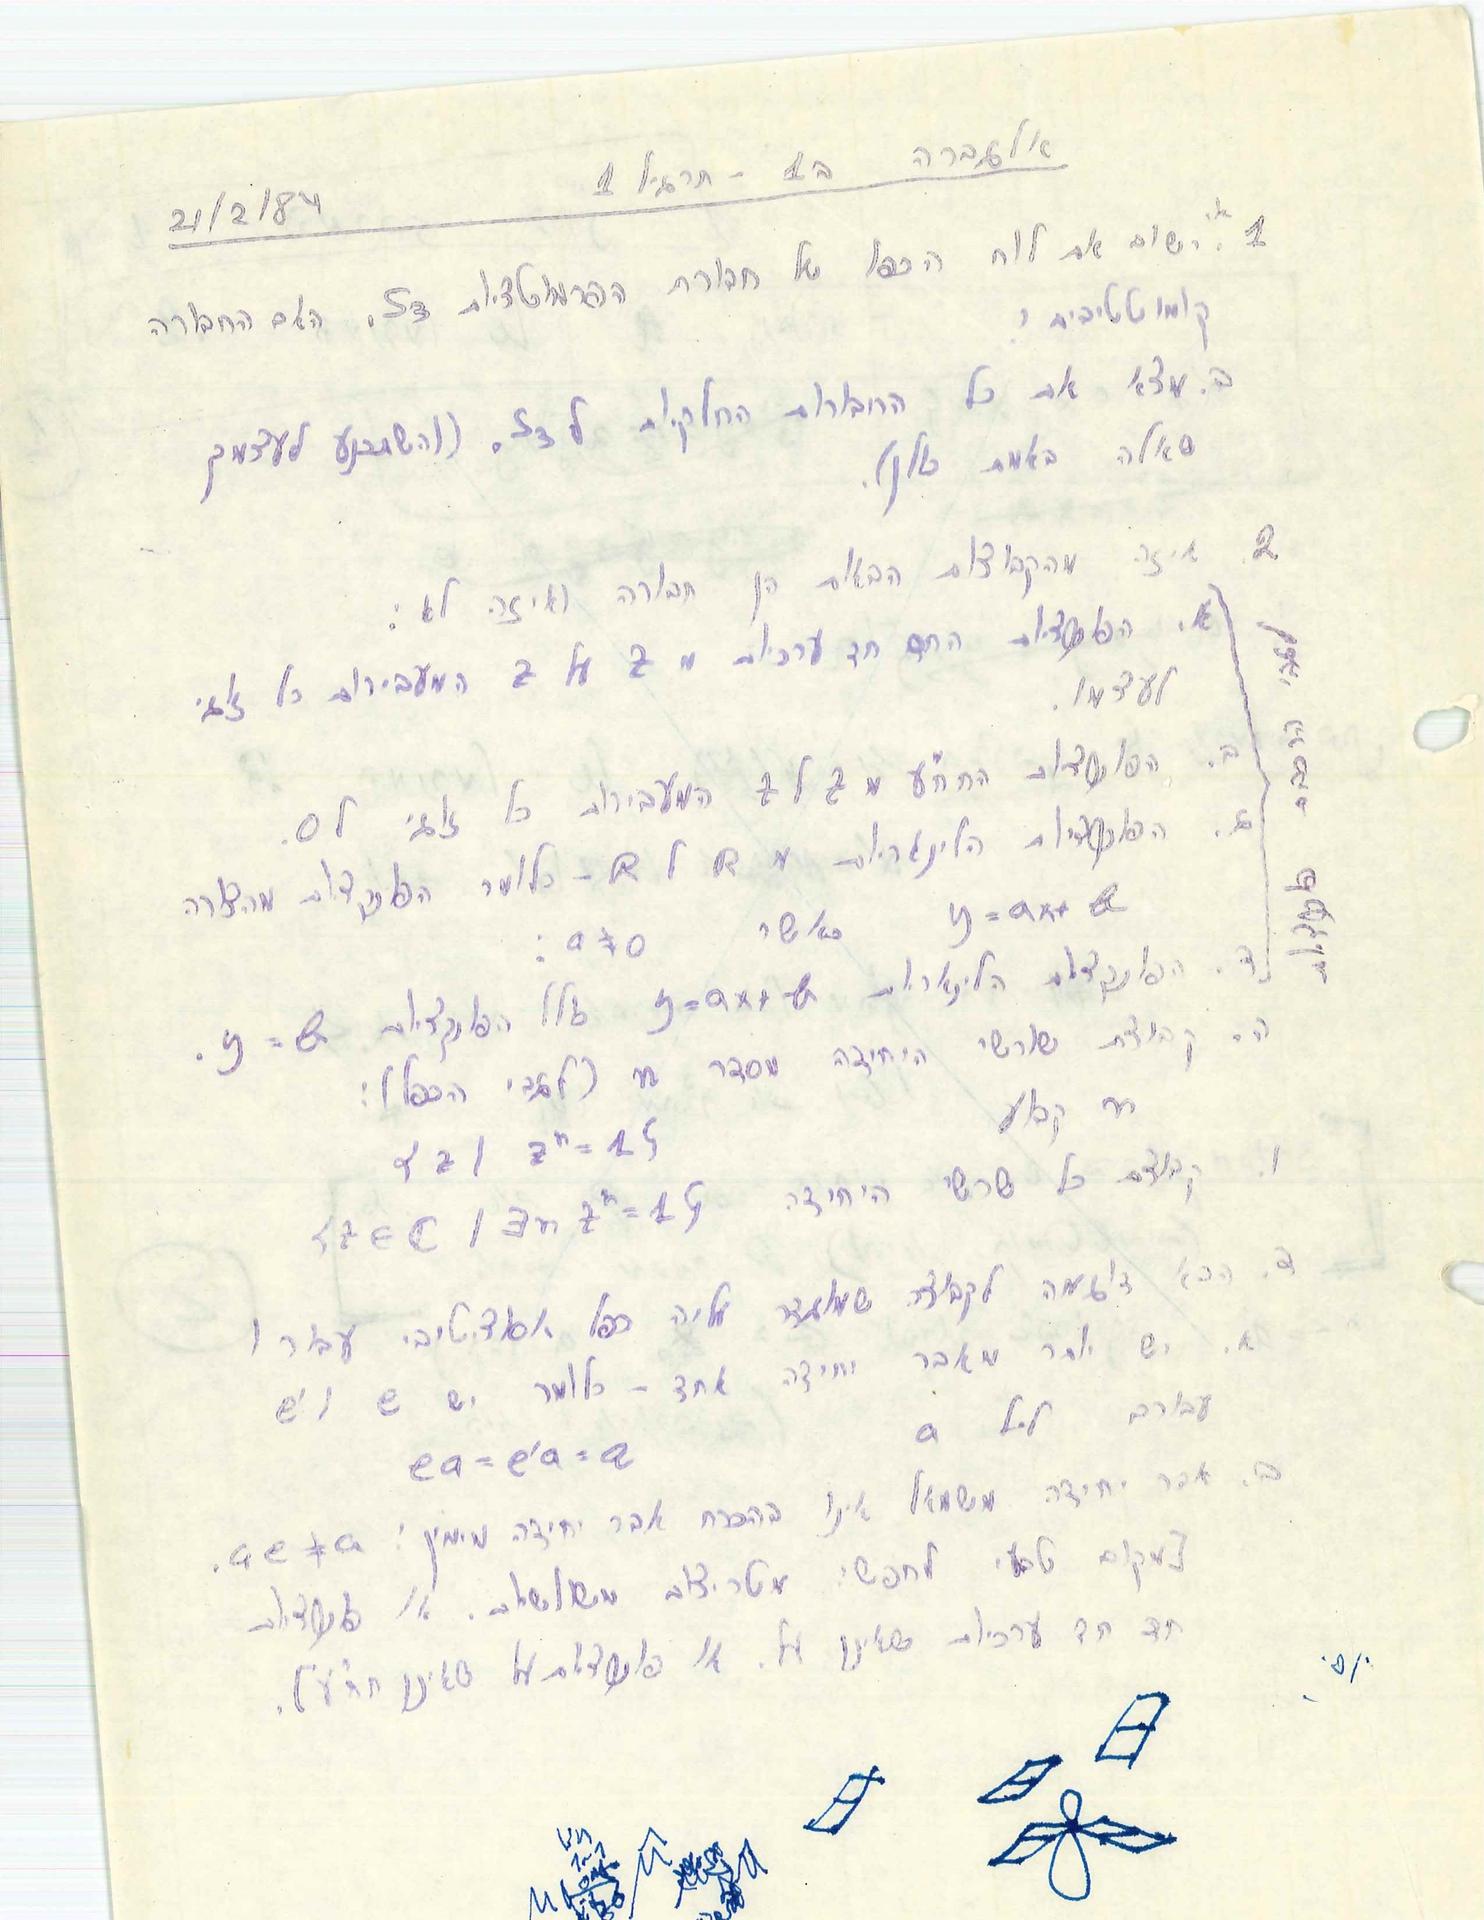 אלגברה ב1 - תרגיל 1
21/2/84
1. א. רשום את לוח הכפל של חבורת הפרמוטציות S3. האם החבורה
קומוטטיבית?
ב. מצא את כל החבורות החלקיות ל S3. (והשתכנע לעצמך
שאלה באמת כולן).
2. איזה מהקבוצות הבאות הן חבורה ואיזה לא:
א. הפונקציות החד חד ערכיות מ Z על Z המעבירות כל זוגי
לעצמו.
ב. הפונקציות החח"ע מ Z ל Z המעבירות כל זוגי ל 0.
ג. הפונקציות הלינאריות מ R ל R - כלומר הפונקציות מהצורה
y=ax+b כאשר a≠0:
ד. הפונקציות הלינאריות y=ax+b כולל הפונקציות y=b.
לגבי הרכבת פונקציות
ה. קבוצת שורשי היחידה מסדר n (לגבי הכפל):
n קבוע
{z | zⁿ=1}
ו. קבוצת כל שרשי היחידה {z∈C | ∃n zⁿ=1}
3. הבא דוגמה לקבוצה שמוגדר עליה כפל אסוציטיבי עבורו
א. יש יותר מאבר יחידה אחד - כלומר יש e ו e'
עבורם לכל a
ea=e'a=a
ב. אבר יחידה משמאל אינו בהכרח אבר יחידה מימין: ae≠a.
[מקום טבעי לחפש: מטריצות משולשות. או פונקציות
חד חד ערכיות שאינן על. או פונקציות על שאינן חח"ע].